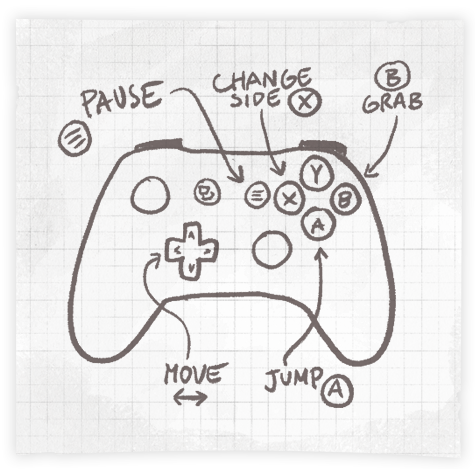 PAUSE
CHANGE
SIDE X
B
GRAB
Y
X
B
A
MOVE
JUMP A